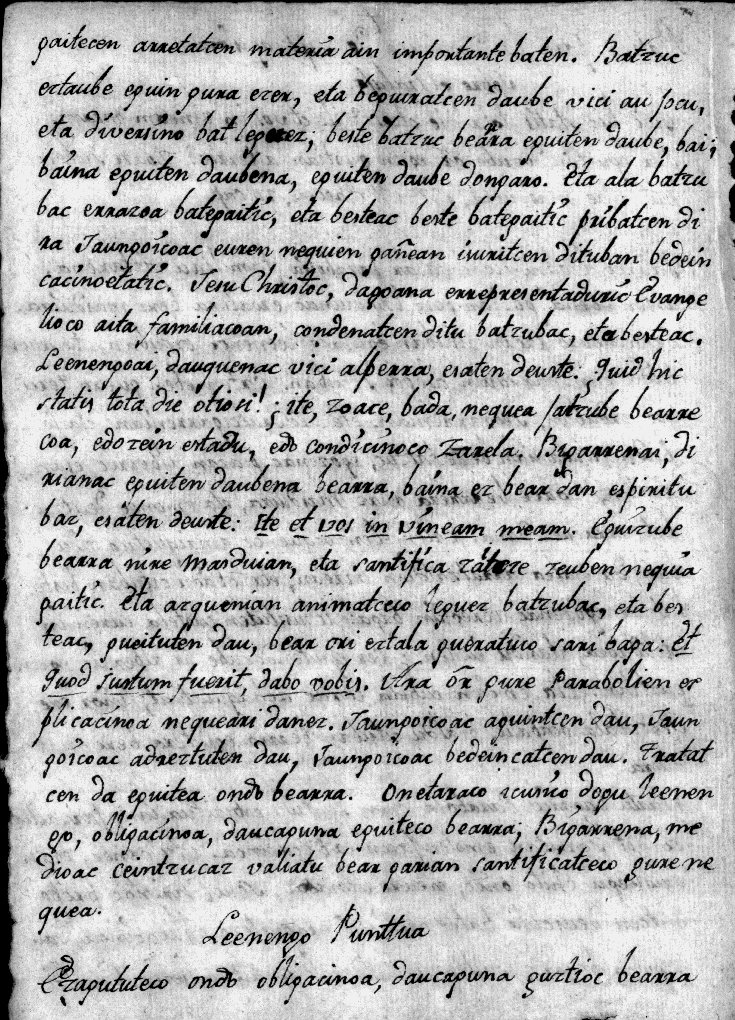 gaitecen arretatcen materia ain importante baten. Batzuc
eztaube eguin gura ezer, eta beguiratcen daube vici au jocu,
eta diversino bat leguez; beste batzuc bearra eguiten daube, bai;
baina eguiten daubena, eguiten daube dongaro. Eta ala batzu
bac errazoa bategaitic, eta besteac beste bategaitic pribatcen di
ra Jaungoicoac euren nequien gañean isuritcen dituban bedein
cacinoetatic. Jesu Christoc, dagoana errepresentaduric Evange
lioco aita familiacoan, condenatcen ditu batzubac, eta besteac.
Leenengoai, dauquenac vici alperra, esaten deuste: Quid hic
statis tota die otiosi! ; ite, zoace, bada, nequea jatzube bearre
coa, edozein estadu, edo condicinoco zarela. Bigarrenai, di
rianac eguiten daubena bearra, baina ez bear dan espiritu
baz, esaten deuste: Ite et vos in vineam meam. Eguizube
bearra nire Marduian, eta santifica zaiteze zeuben nequia
gaitic. Eta azquenian animatceco leguez batzubac, eta bes
teac, gueituten dau, bear ori eztala gueratuco sari baga: et
quod justum fuerit, dabo vobis. Ara or gure Parabolien es
plicacinoa nequeari danez. Jaungoicoac aguintcen dau, Jaun
goicoac adreztuten dau, Jaungoicoac bedeincatcen dau. Tratat
cen da eguitea ondo bearra. Onetaraco icusico dogu leenen
go, obligacinoa, daucaguna eguiteco bearra; Bigarrena, me
dioac ceintzucaz valiatu bear garian santificatceco gure ne
quea.
Leenengo Punttua
Ezagututeco ondo obligacinoa, daucaguna guztioc bearra